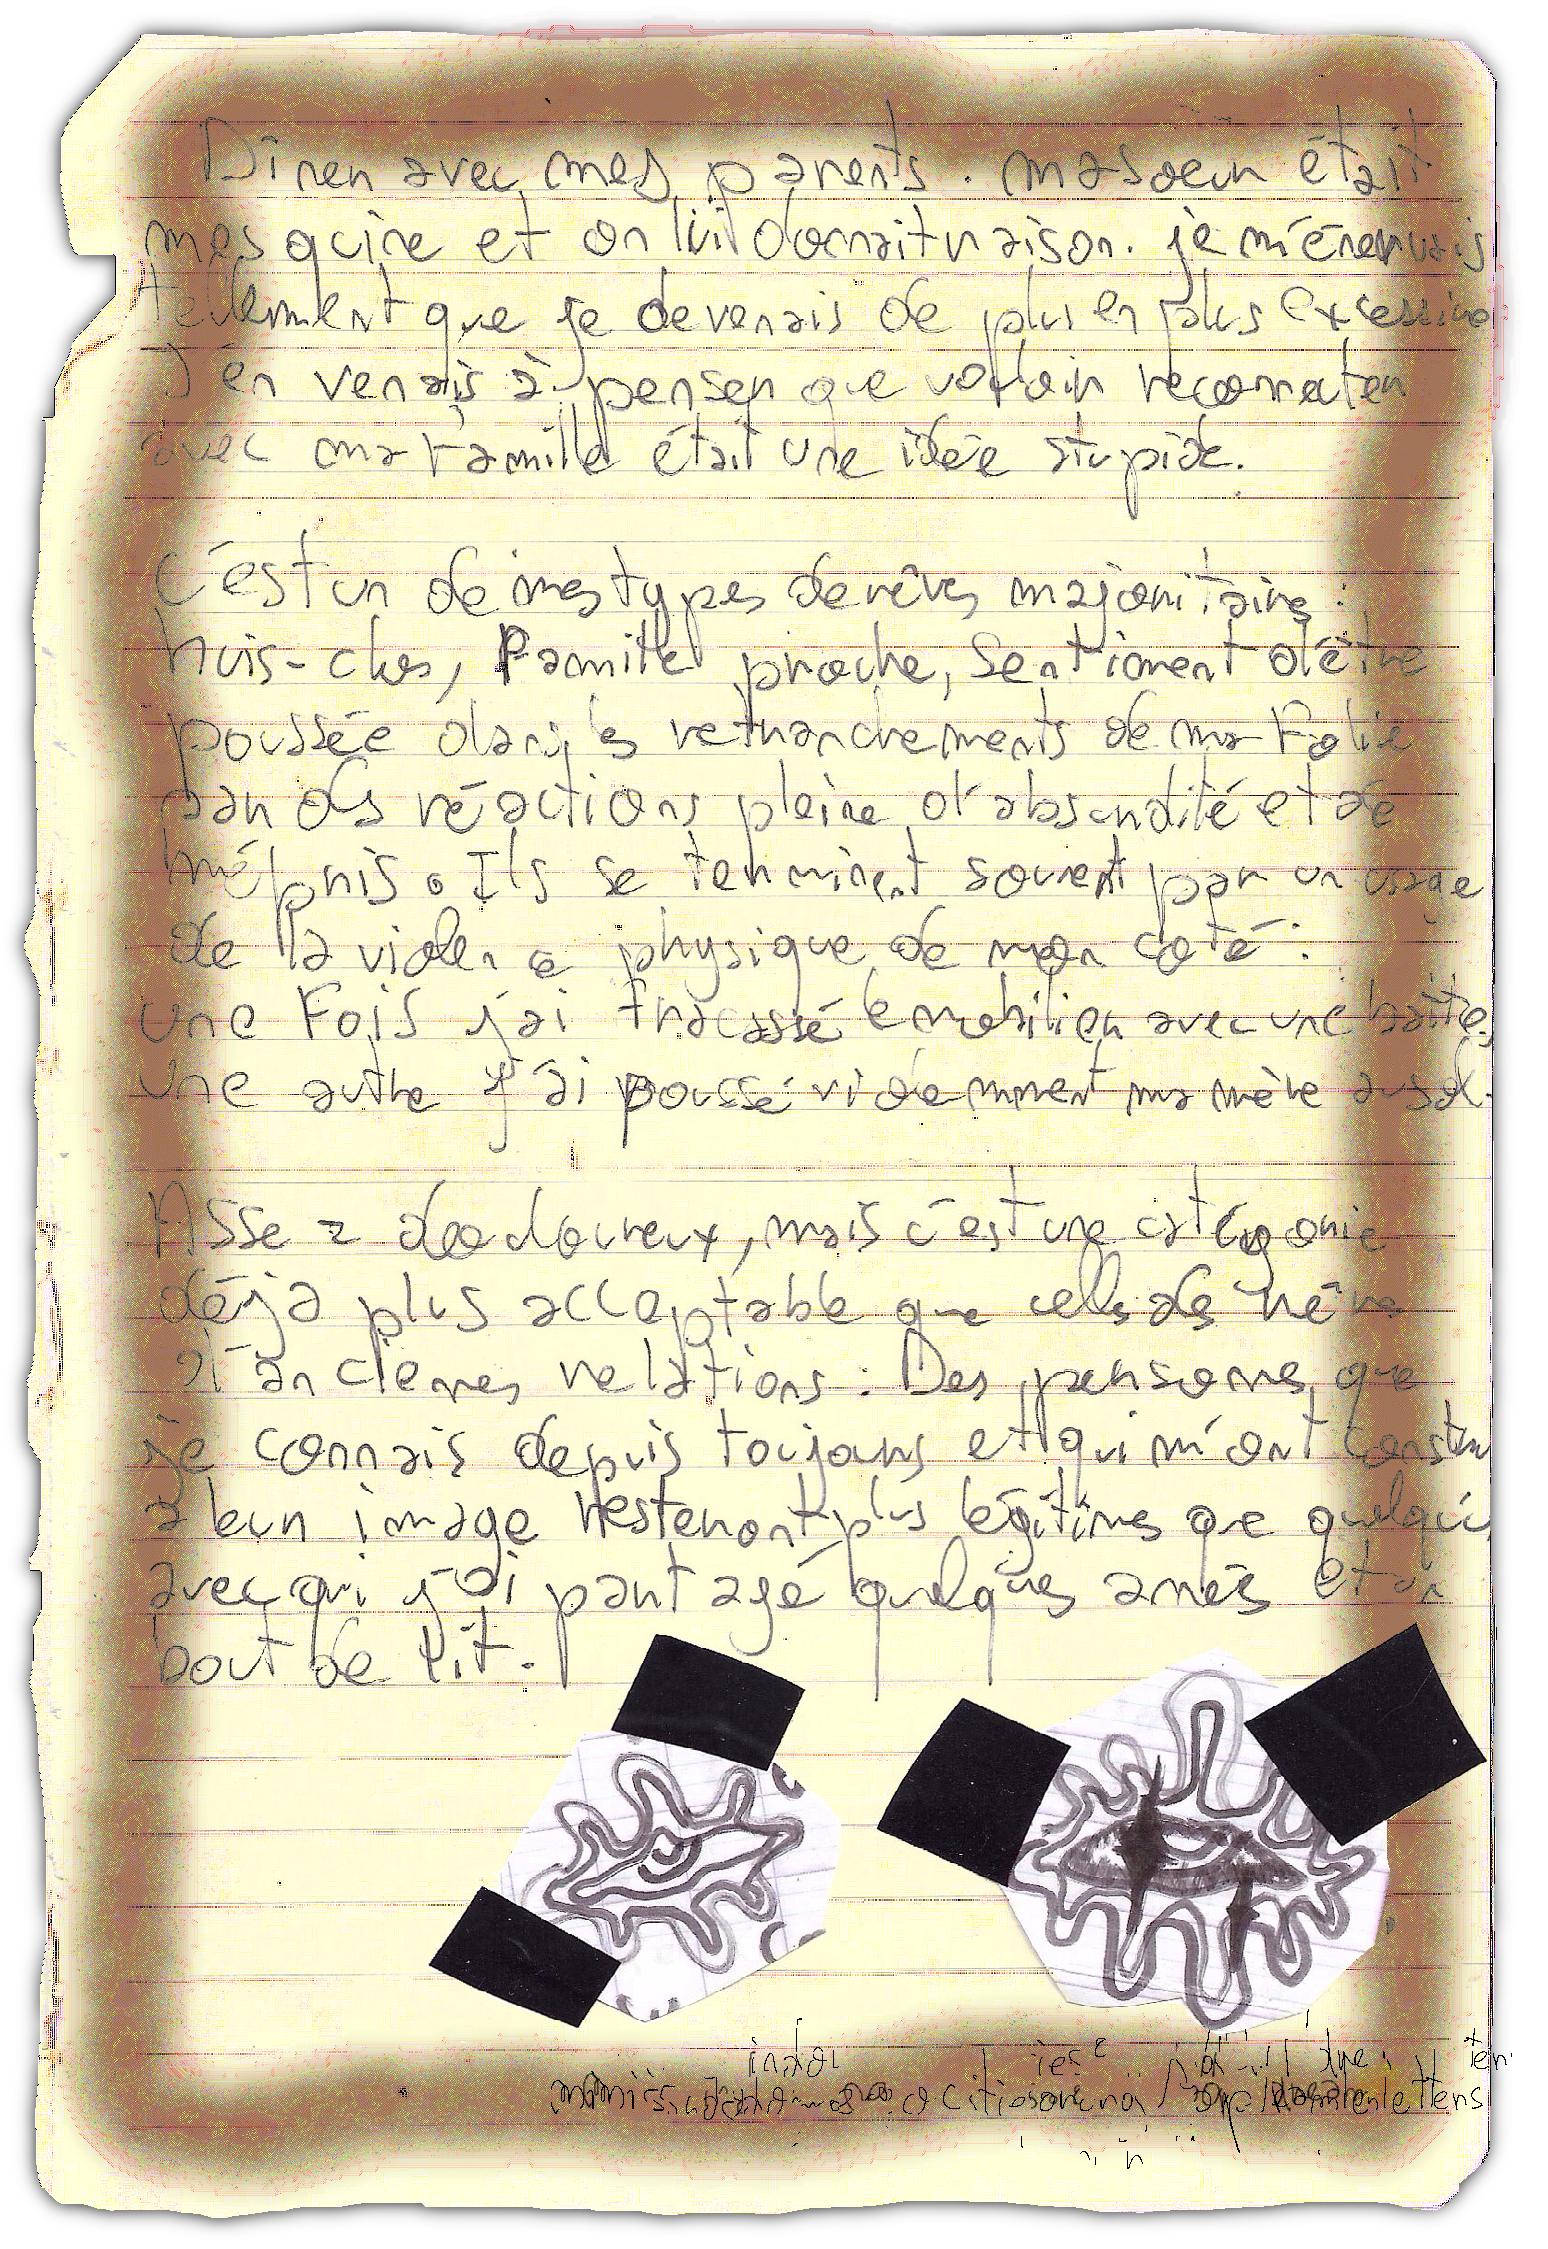 Dîner avec mes parents. ma soeur était
mesquine et on lui donnait raison. je m'énervais
tellement que je devenais de plus en plus excessive.
J'en venais à penser que vouloir reconnecter
avec ma famille était une idée stupide.
C'est un de mes types de rêves majoritaire :
huis-clos, Famille proche, Sentiment d'être
poussée dans les retranchements de ma Folie
par des réactions pleine d'absurdité et de
mépris. Ils se terminent souvent par un usage
de la violence physique de mon coté :
une Fois j'ai fracassé le mobilier avec une
une autre j'ai poussé violemment ma mère au sol.
Assez douloureux, mais c'est une catégorie
déjà plus acceptable que celle des
d'anciennes relations : Des personnes que
je connais depuis toujours et qui m'ont
à leur image resteront plus légitimes que
avec qui j'ai partagé quelques anées et un
bout de lit.